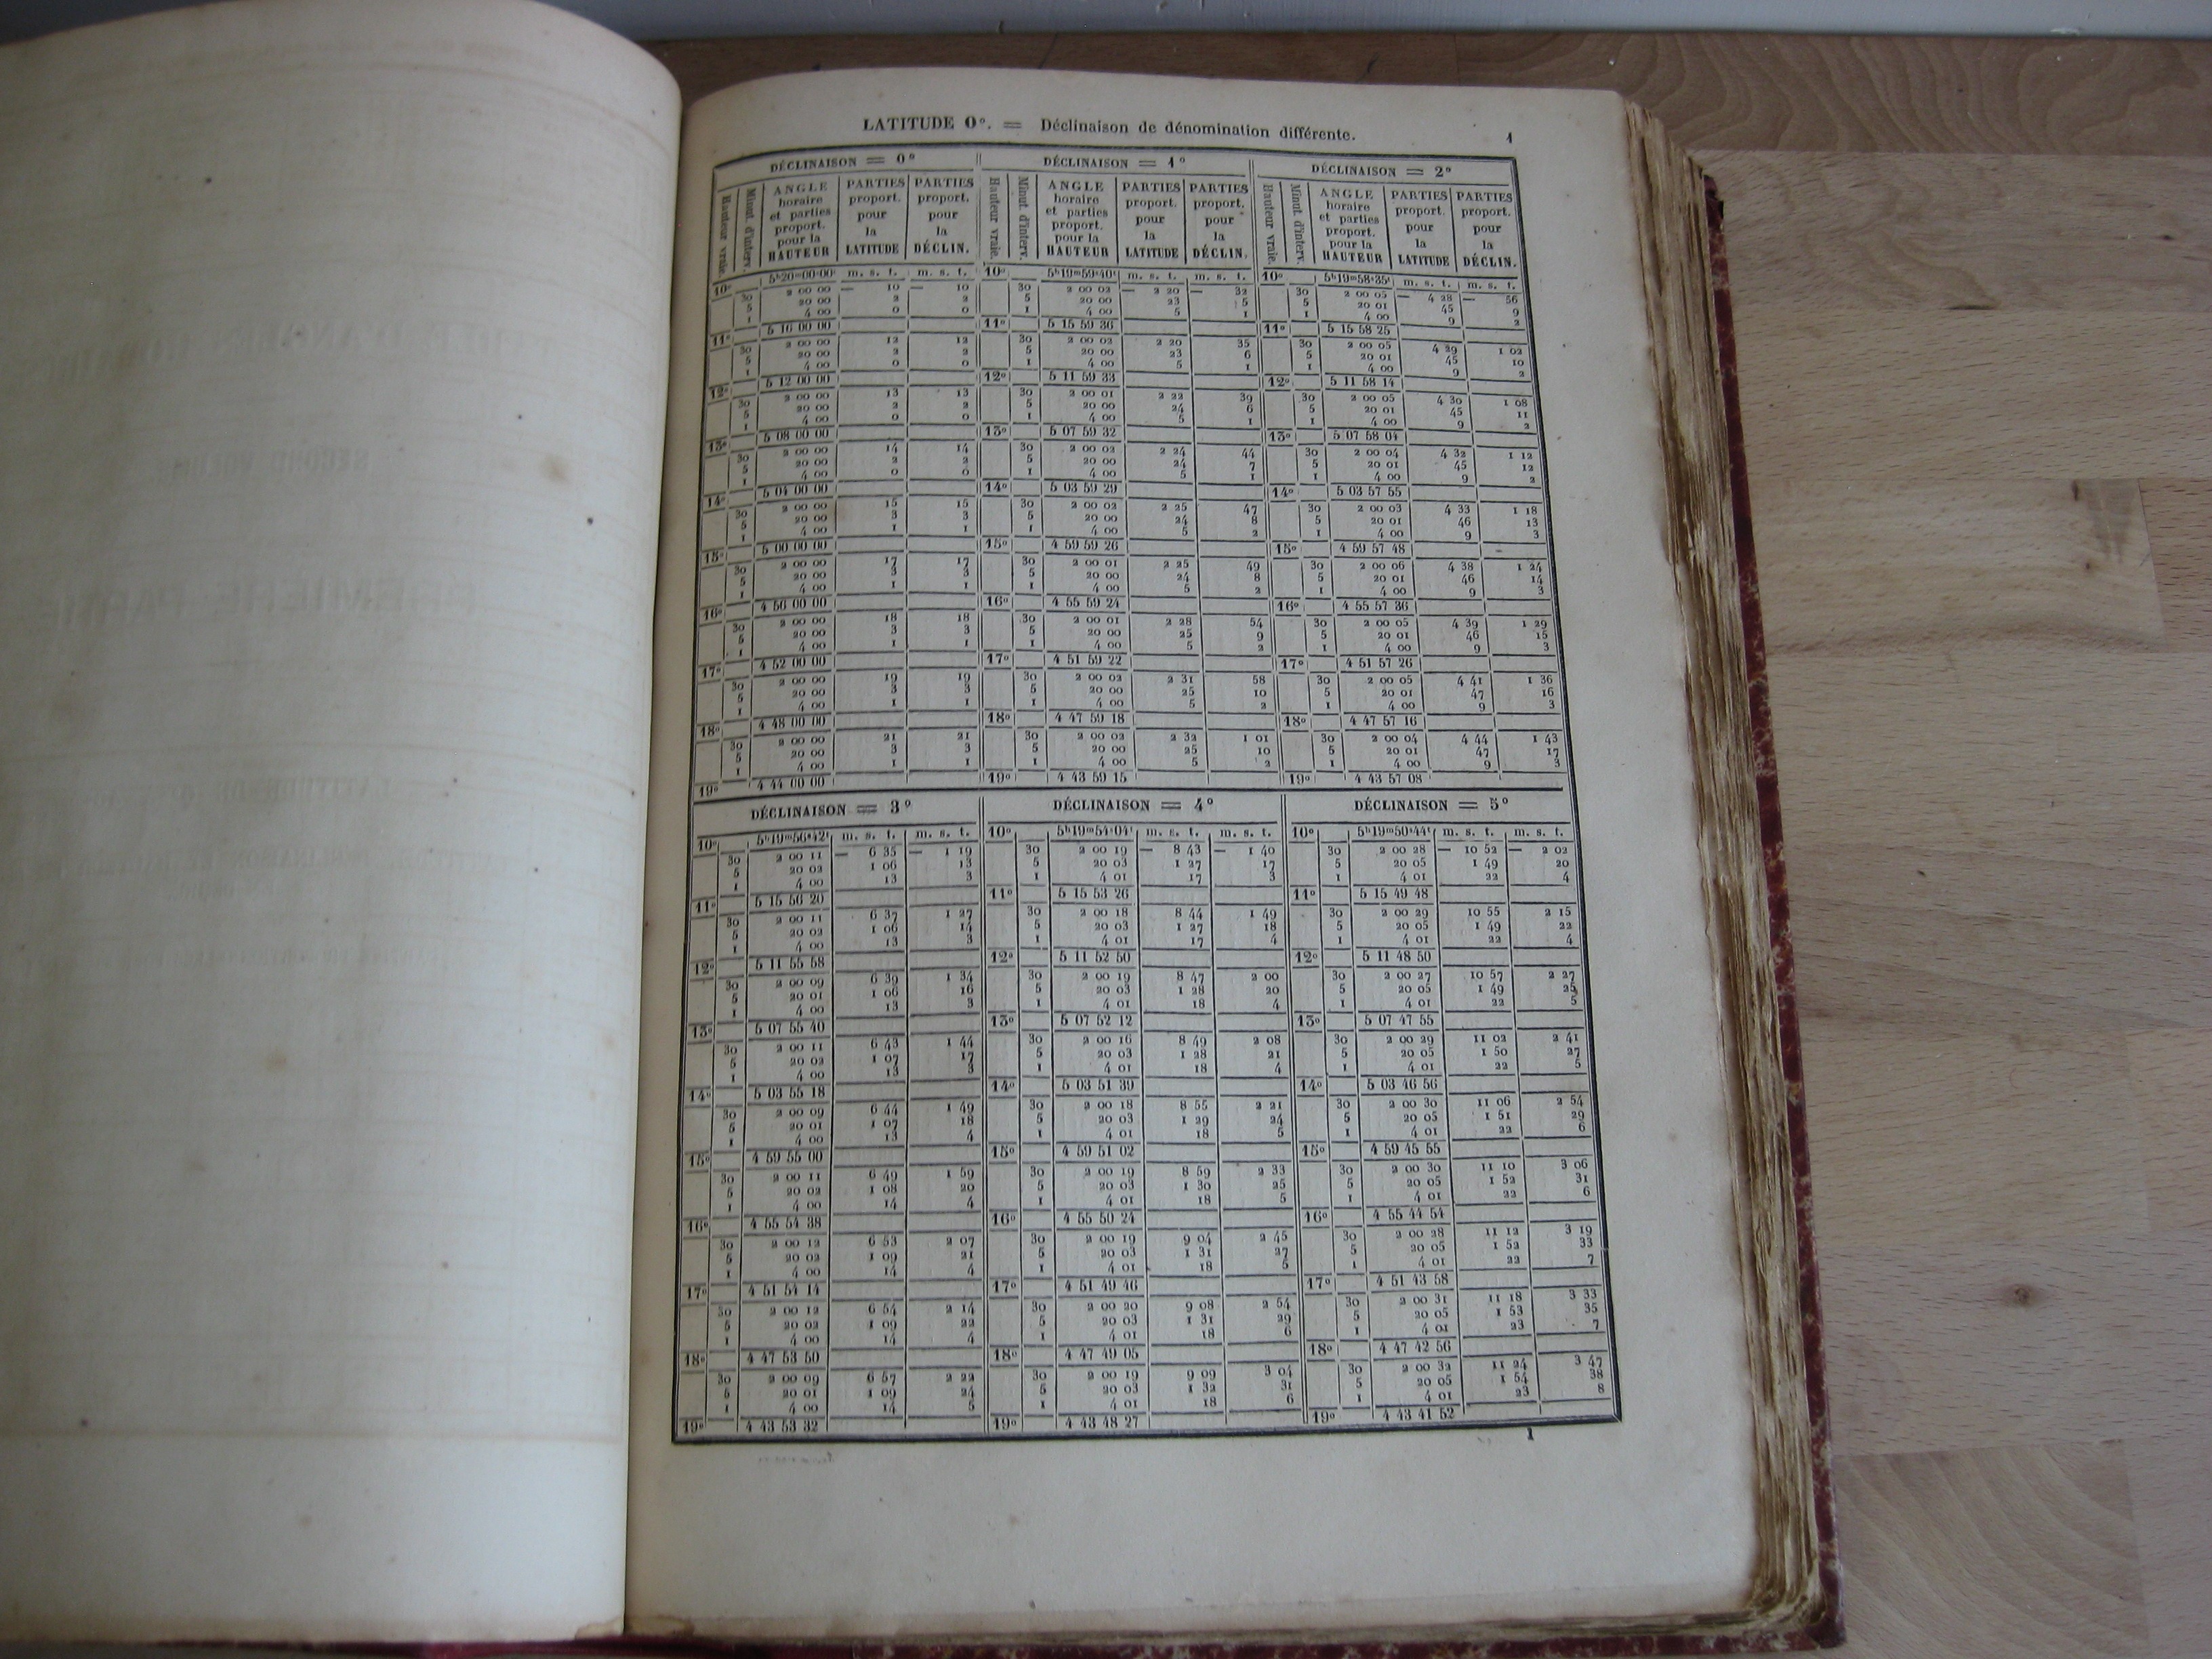 LATITUDE 0°. = Déclinaison de dénomination différente. 1
DÉCLINAISON = 0° DÉCLINAISON = 1° DÉCLINAISON = 2°
Hauteur vraie. Minut. d'interv. ANGLE horaire et parties proport. pour la HAUTEUR PARTIES proport. pour la LATITUDE PARTIES proport. pour la DÉCLIN. Hauteur vraie. Minut. d'interv. ANGLE horaire et parties proport. pour la HAUTEUR PARTIES proport. pour la LATITUDE PARTIES proport. pour la DÉCLIN. Hauteur vraie. Minut. d'interv. ANGLE horaire et parties proport. pour la HAUTEUR PARTIES proport. pour la LATITUDE PARTIES proport. pour la DÉCLIN.
10° 5ʰ20ᵐ00ˢ00ᵗ m. s. t. m. s. t. 10° 5ʰ19ᵐ59ˢ40ᵗ m. s. t. m. s. t. 10° 5ʰ19ᵐ58ˢ35ᵗ m. s. t. m. s. t.
30 2 00 00 — 10 — 10 30 2 00 02 — 2 20 — 32 30 2 00 05 — 4 28 — 56
5 20 00 2 2 5 20 00 23 5 5 20 01 45 9
1 4 00 0 0 1 4 00 5 1 1 4 00 9 2
11° 5 16 00 00 11° 5 15 59 36 11° 5 15 58 25
30 2 00 00 12 12 30 2 00 02 2 20 35 30 2 00 05 4 29 1 02
5 20 00 2 2 5 20 00 23 6 5 20 01 45 10
1 4 00 0 0 1 4 00 5 1 1 4 00 9 2
12° 5 12 00 00 12° 5 11 59 33 12° 5 11 58 14
30 2 00 00 13 13 30 2 00 01 2 22 39 30 2 00 05 4 30 1 08
5 20 00 2 2 5 20 00 24 6 5 20 01 45 11
1 4 00 0 0 1 4 00 5 1 1 4 00 9 2
13° 5 08 00 00 13° 5 07 59 32 13° 5 07 58 04
30 2 00 00 14 14 30 2 00 02 2 24 44 30 2 00 04 4 32 1 12
5 20 00 2 2 5 20 00 24 7 5 20 01 45 12
1 4 00 0 0 1 4 00 5 1 1 4 00 9 2
14° 5 04 00 00 14° 5 03 59 29 14° 5 03 57 55
30 2 00 00 15 15 30 2 00 02 2 25 47 30 2 00 03 4 33 1 18
5 20 00 3 3 5 20 00 24 8 5 20 01 46 13
1 4 00 1 1 1 4 00 5 2 1 4 00 9 3
15° 5 00 00 00 15° 4 59 59 26 15° 4 59 57 48
30 2 00 00 17 17 30 2 00 01 2 25 49 30 2 00 06 4 38 1 24
5 20 00 3 3 5 20 00 24 8 5 20 01 46 14
1 4 00 1 1 1 4 00 5 2 1 4 00 9 3
16° 4 56 00 00 16° 4 55 59 24 16° 4 55 57 36
30 2 00 00 18 18 30 2 00 01 2 28 54 30 2 00 05 4 39 1 29
5 20 00 3 3 5 20 00 25 9 5 20 01 46 15
1 4 00 1 1 1 4 00 5 2 1 4 00 9 3
17° 4 52 00 00 17° 4 51 59 22 17° 4 51 57 26
30 2 00 00 19 19 30 2 00 02 2 31 58 30 2 00 05 4 41 1 36
5 20 00 3 3 5 20 00 25 10 5 20 01 47 16
1 4 00 1 1 1 4 00 5 2 1 4 00 9 3
18° 4 48 00 00 18° 4 47 59 18 18° 4 47 57 16
30 2 00 00 21 21 30 2 00 02 2 32 1 01 30 2 00 04 4 44 1 43
5 20 00 3 3 5 20 00 25 10 5 20 01 47 17
1 4 00 1 1 1 4 00 5 2 1 4 00 9 3
19° 4 44 00 00 19° 4 43 59 15 19° 4 43 57 08
DÉCLINAISON = 3° DÉCLINAISON = 4° DÉCLINAISON = 5°
10° 5ʰ19ᵐ56ˢ42ᵗ m. s. t. m. s. t. 10° 5ʰ19ᵐ54ˢ04ᵗ m. s. t. m. s. t. 10° 5ʰ19ᵐ50ˢ44ᵗ m. s. t. m. s. t.
30 2 00 11 — 6 35 — 1 19 30 2 00 19 — 8 43 — 1 40 30 2 00 28 — 10 52 — 2 02
5 20 02 1 06 13 5 20 03 1 27 17 5 20 05 1 49 20
1 4 00 13 3 1 4 01 17 3 1 4 01 22 4
11° 5 15 56 20 11° 5 15 53 26 11° 5 15 49 48
30 2 00 11 6 37 1 27 30 2 00 18 8 44 1 49 30 2 00 29 10 55 2 15
5 20 02 1 06 14 5 20 03 1 27 18 5 20 05 1 49 22
1 4 00 13 3 1 4 01 17 4 1 4 01 22 4
12° 5 11 55 58 12° 5 11 52 50 12° 5 11 48 50
30 2 00 09 6 39 1 34 30 2 00 19 8 47 2 00 30 2 00 27 10 57 2 27
5 20 01 1 06 16 5 20 03 1 28 20 5 20 05 1 49 25
1 4 00 13 3 1 4 01 18 4 1 4 01 22 5
13° 5 07 55 40 13° 5 07 52 12 13° 5 07 47 55
30 2 00 11 6 43 1 44 30 2 00 16 8 49 2 08 30 2 00 29 11 02 2 41
5 20 02 1 07 17 5 20 03 1 28 21 5 20 05 1 50 27
1 4 00 13 3 1 4 01 18 4 1 4 01 22 5
14° 5 03 55 18 14° 5 03 51 39 14° 5 03 46 56
30 2 00 09 6 44 1 49 30 2 00 18 8 55 2 21 30 2 00 30 11 06 2 54
5 20 01 1 07 18 5 20 03 1 29 24 5 20 05 1 51 29
1 4 00 13 4 1 4 01 18 5 1 4 01 22 6
15° 4 59 55 00 15° 4 59 51 02 15° 4 59 45 55
30 2 00 11 6 49 1 59 30 2 00 19 8 59 2 33 30 2 00 30 11 10 3 06
5 20 02 1 08 20 5 20 03 1 30 25 5 20 05 1 52 31
1 4 00 14 4 1 4 01 18 5 1 4 01 22 6
16° 4 55 54 38 16° 4 55 50 24 16° 4 55 44 54
30 2 00 12 6 53 2 07 30 2 00 19 9 04 2 45 30 2 00 28 11 12 3 19
5 20 02 1 09 21 5 20 03 1 31 27 5 20 05 1 52 33
1 4 00 14 4 1 4 01 18 5 1 4 01 22 7
17° 4 51 54 14 17° 4 51 49 46 17° 4 51 43 58
30 2 00 12 6 54 2 14 30 2 00 20 9 08 2 54 30 2 00 31 11 18 3 33
5 20 02 1 09 22 5 20 03 1 31 29 5 20 05 1 53 35
1 4 00 14 4 1 4 01 18 6 1 4 01 23 7
18° 4 47 53 50 18° 4 47 49 05 18° 4 47 42 56
30 2 00 09 6 57 2 22 30 2 00 19 9 09 3 04 30 2 00 32 11 24 3 47
5 20 01 1 09 24 5 20 03 1 32 31 5 20 05 1 54 38
1 4 00 14 5 1 4 01 18 6 1 4 01 23 8
19° 4 43 53 32 19° 4 43 48 27 19° 4 43 41 52
1